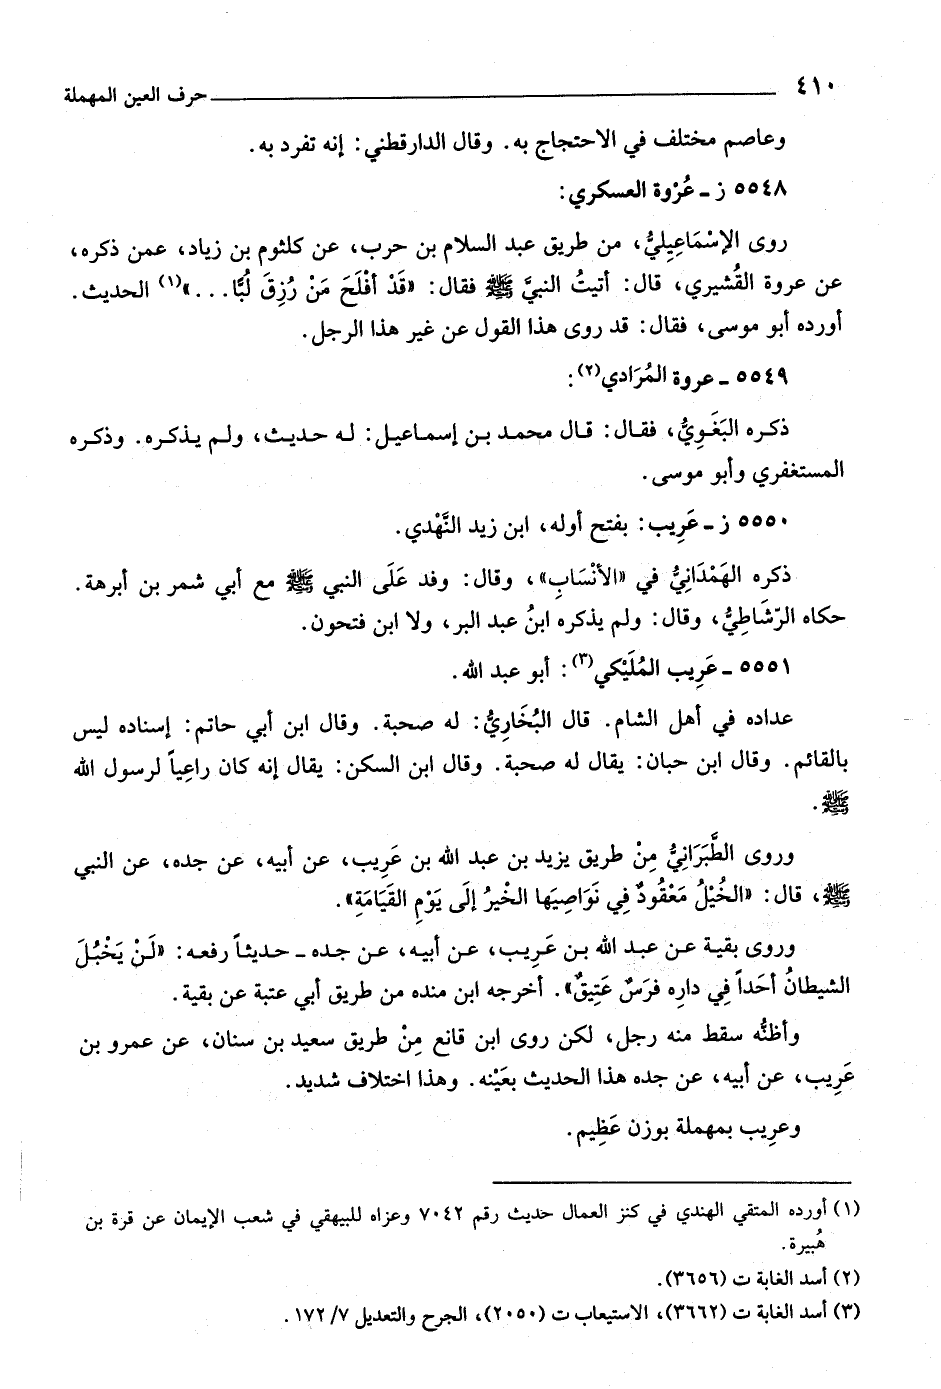 ٤١٠ حرف العين المهملة
وعاصم مختلف في الاحتجاج به. وقال الدارقطني: إنه تفرد به.
٥٥٤٨ ز ـ عُرْوة العسكري:
روى الإسْمَاعِيلِيُّ، من طريق عبد السلام بن حرب، عن كلثوم بن زياد، عمن ذكره،
عن عروة القُشيري، قال: أتيتُ النبيَّ ﷺ فقال: «قَدْ أفْلَحَ مَنْ رُزِقَ لُبًّا...»(١) الحديث.
أورده أبو موسى، فقال: قد روى هذا القول عن غير هذا الرجل.
٥٥٤٩ ـ عروة المُرَادي(٢):
ذكره البَغَوِيُّ، فقال: قال محمد بن إسماعيل: له حديث، ولم يذكره. وذكره
المستغفري وأبو موسى.
٥٥٥٠ ز ـ عَرِيب: بفتح أوله، ابن زيد النَّهْدي.
ذكره الهَمْدَانِيُّ في «الأنْسَابِ»، وقال: وفد عَلَى النبي ﷺ مع أبي شمر بن أبرهة.
حكاه الرّشَاطِيُّ، وقال: ولم يذكره ابنُ عبد البر، ولا ابن فتحون.
٥٥٥١ ـ عَرِيب المُلَيْكي(٣): أبو عبد الله.
عداده في أهل الشام. قال البُخَارِيُّ: له صحبة. وقال ابن أبي حاتم: إسناده ليس
بالقائم. وقال ابن حبان: يقال له صحبة. وقال ابن السكن: يقال إنه كان راعِياً لرسول الله
ﷺ.
وروى الطَّبَرَانِيُّ مِنْ طريق يزيد بن عبد الله بن عَرِيب، عن أبيه، عن جده، عن النبي
ﷺ، قال: «الخُيْلُ مَعْقُودٌ فِي نَوَاصِيَها الخْيرُ إلَى يَوْمِ القَيَامَةِ».
وروى بقية عن عبد الله بن عَرِيب، عن أبيه، عن جده ـ حديثاً رفعه: «لَنْ يَخْبُلَ
الشيطانُ أحَداً فِي دارِه فرَسٌ عَتِيقٌ». أخرجه ابن منده من طريق أبي عتبة عن بقية.
وأظنُّه سقط منه رجل، لكن روى ابن قانع مِنْ طريق سعيد بن سنان، عن عمرو بن
عَرِيب، عن أبيه، عن جده هذا الحديث بعَيْنه. وهذا اختلاف شديد.
وعرِيب بمهملة بوزن عَظِيم.
(١) أورده المتقي الهندي في كنز العمال حديث رقم ٧٠٤٢ وعزاه للبيهقي في شعب الإيمان عن قرة بن
هُبيرة.
(٢) أسد الغابة ت (٣٦٥٦).
(٣) أسد الغابة ت (٣٦٦٢)، الاستيعاب ت (٢٠٥٠)، الجرح والتعديل ٧/ ١٧٢.